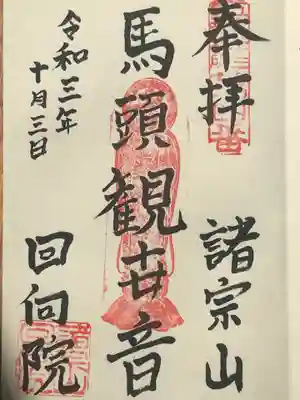 奉拝
諸宗山
馬頭観世音
令和三年
十月三日
回向院